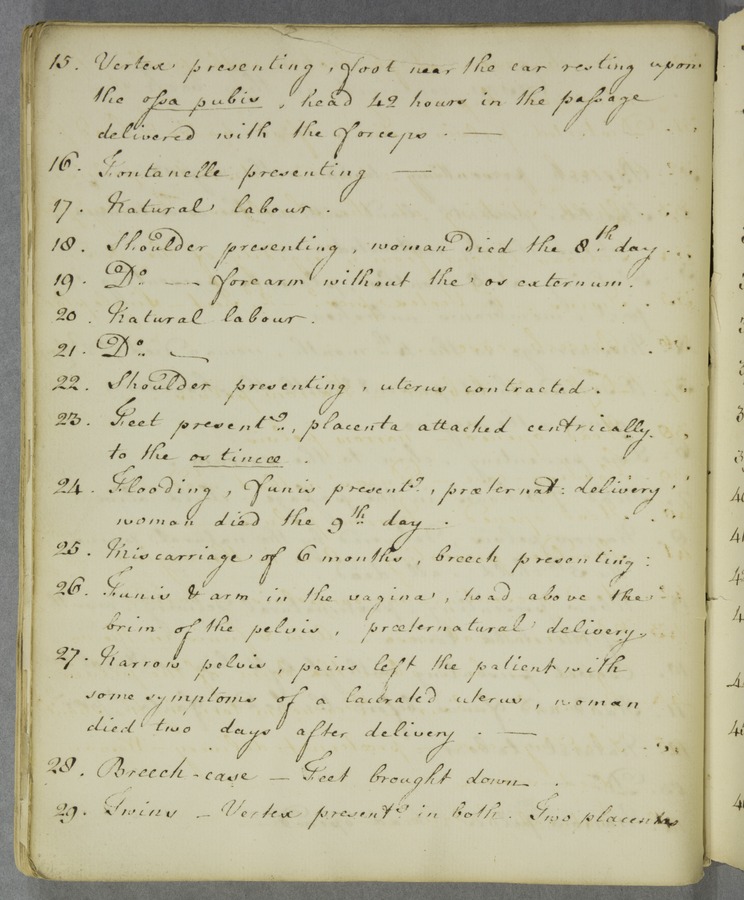 15. Vertex presenting, foot near the ear resting upon
the ossa pubis, head 42 hours in the passage
delivered with the forceps. —
16. Fontanelle presenting —
17. Natural labour.
18. Shoulder presenting, woman died the 8th day.
19. Do — forearm without the os externum.
20. Natural labour.
21. Do —
22. Shoulder presenting, uterus contracted.
23. Feet presentg, placenta attached centrically
to the os tincæ.
24. Flooding, funis presentg, præternat: delivery
woman died the 9th day.
25. Miscarriage of 6 months, breech presenting:
26. Funis & arm in the vagina, head above the
brim of the pelvis, præternatural delivery.
27. Narrow pelvis, pains left the patient with
some symptoms of a lacerated uterus, woman
died two days after delivery. —
28. Breech-case — Feet brought down.
29. Twins — Vertex presentg in both. Two placentas